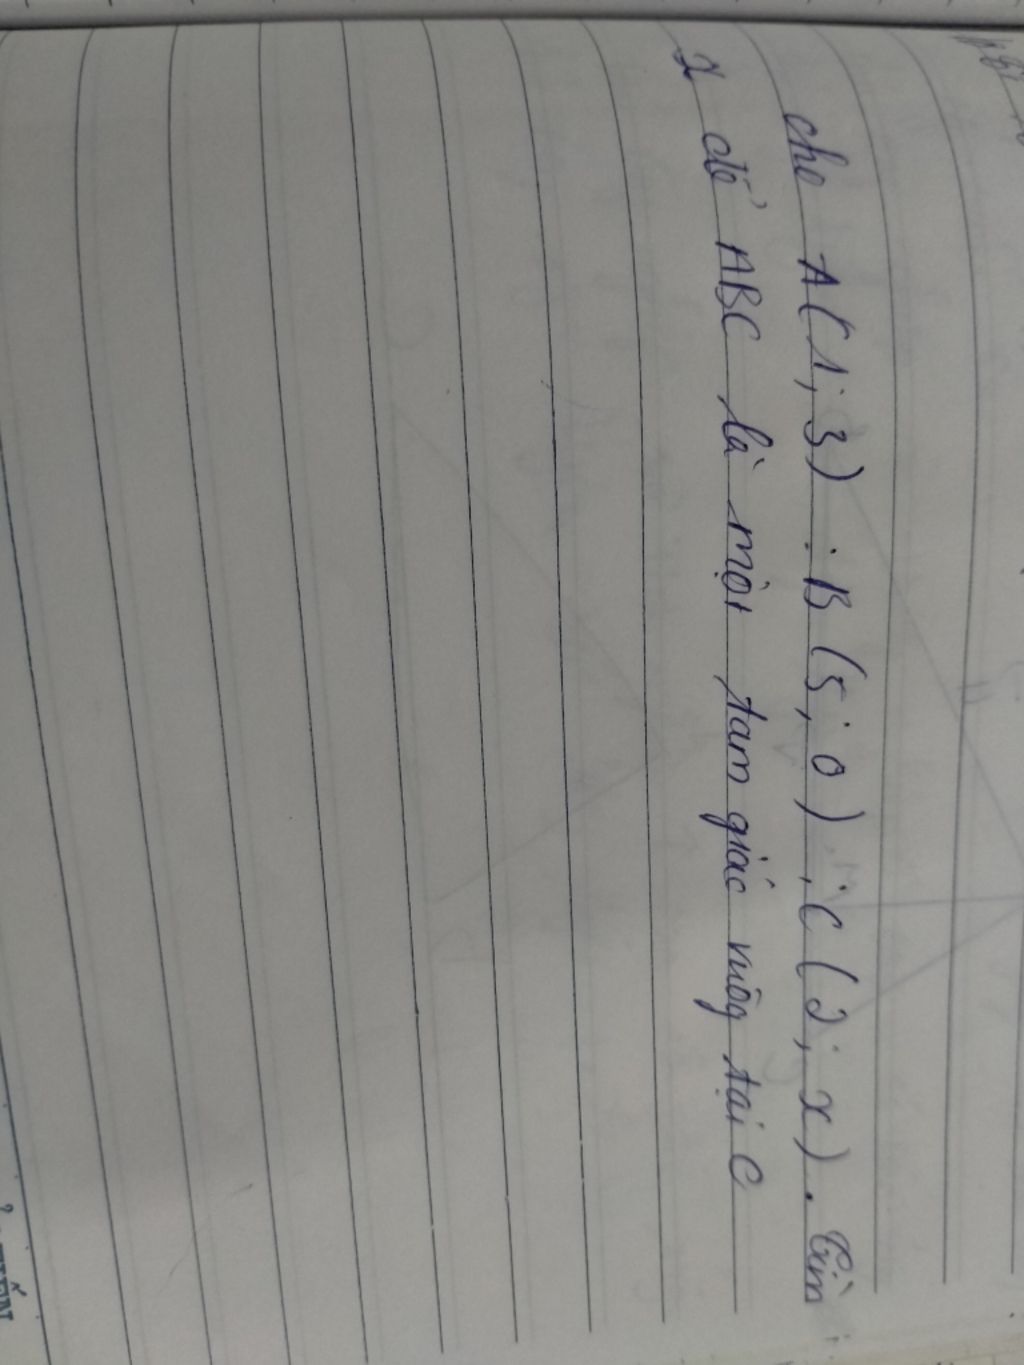 cho A(1; 3) ; B (5; 0) ; C (2; x). Tìm
x để ABC là một tam giác vuôg tại C